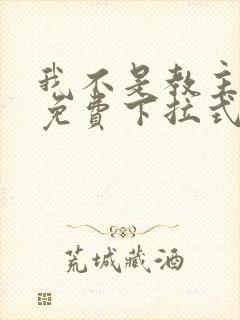 我不是教主
免費下拉式
荒城藏酒